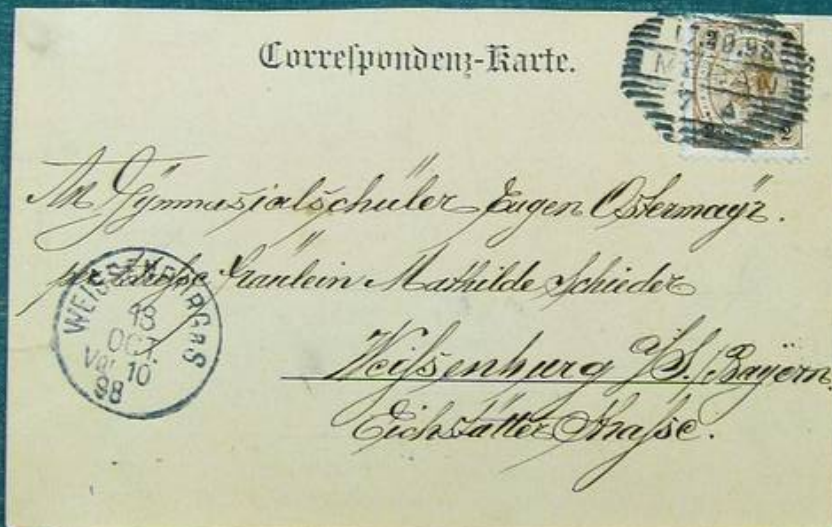 Correspondenz-Karte.
17.10.98
MERAN
2
An Gymnasialschüler Eugen Ostermayr.
per Adresse Fräulein Mathilde Schieder
Weißenburg a/S. (Bayern
Eichstätter Straße.
WEISSENBURG a S
18
OCT.
Vor. 10
98